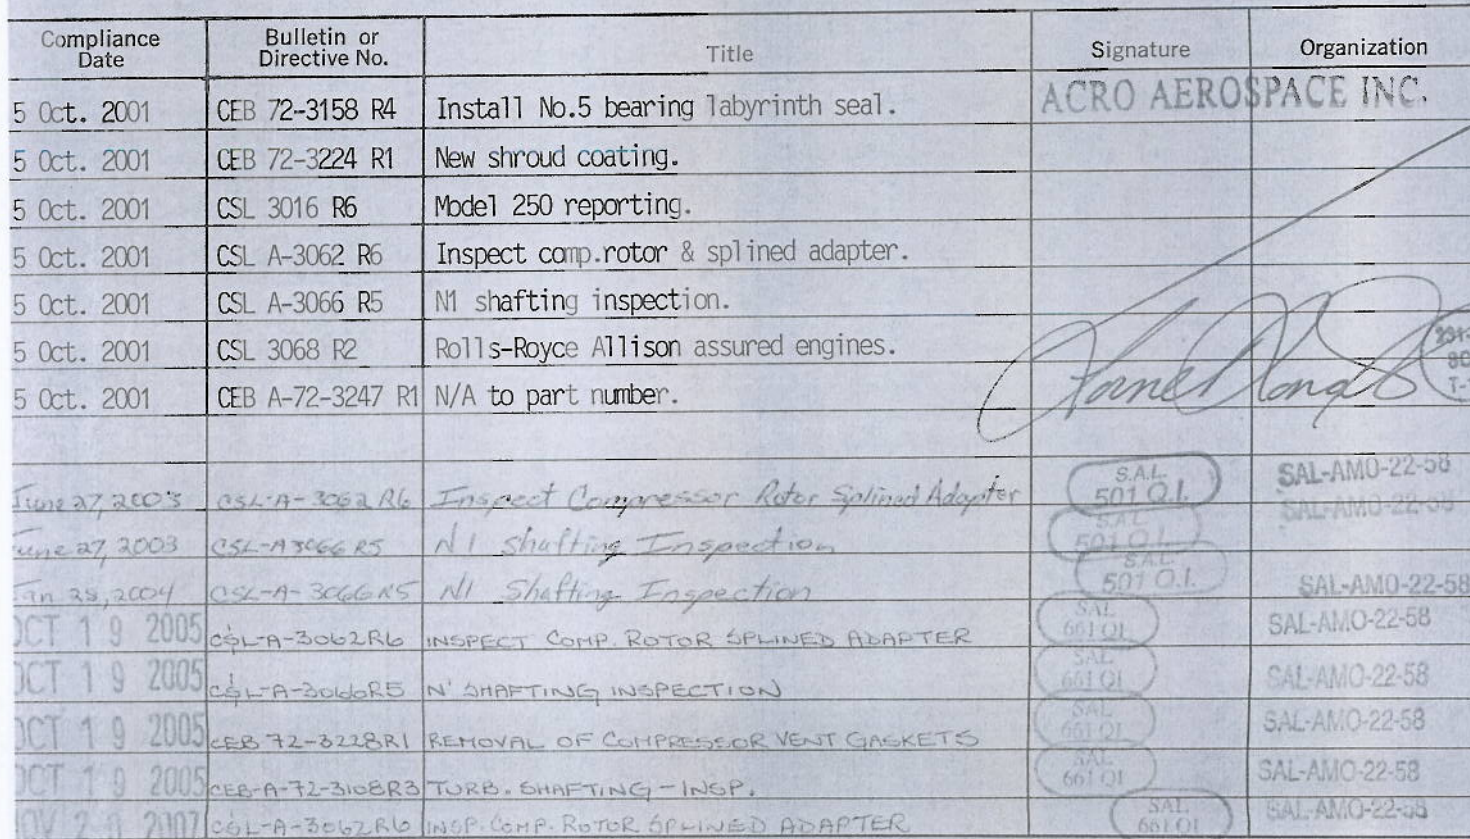 Compliance Date Bulletin or Directive No. Title Signature Organization
5 Oct. 2001 CEB 72-3158 R4 Install No.5 bearing labyrinth seal. ACRO AEROSPACE INC.
5 Oct. 2001 CEB 72-3224 R1 New shroud coating.
5 Oct. 2001 CSL 3016 R6 Model 250 reporting.
5 Oct. 2001 CSL A-3062 R6 Inspect comp.rotor & splined adapter.
5 Oct. 2001 CSL A-3066 R5 N1 shafting inspection.
5 Oct. 2001 CSL 3068 R2 Rolls-Royce Allison assured engines.
5 Oct. 2001 CEB A-72-3247 R1 N/A to part number.
June 27, 2003 CSL-A-3062 R6 Inspect Compressor Rotor Splined Adapter S.A.L. 501 Q.I. SAL-AMO-22-58
June 27, 2003 CSL-A3066 R5 N1 Shafting Inspection S.A.L. 501 Q.I. SAL-AMO-22-58
Jan 28, 2004 CSL-A-3066 R5 N1 Shafting Inspection S.A.L. 501 Q.I. SAL-AMO-22-58
OCT 19 2005 CSL-A-3062R6 INSPECT COMP. ROTOR SPLINED ADAPTER SAL 661 QI SAL-AMO-22-58
OCT 19 2005 CSL-A-3066R5 N' SHAFTING INSPECTION SAL 661 QI SAL-AMO-22-58
OCT 19 2005 CEB 72-3228R1 REMOVAL OF COMPRESSOR VENT GASKETS SAL 661 QI SAL-AMO-22-58
OCT 19 2005 CEB-A-72-3108R3 TURB. SHAFTING - INSP. SAL 661 QI SAL-AMO-22-58
NOV 20 2007 CSL-A-3062R6 INSP. COMP. ROTOR SPLINED ADAPTER SAL 661 QI SAL-AMO-22-58